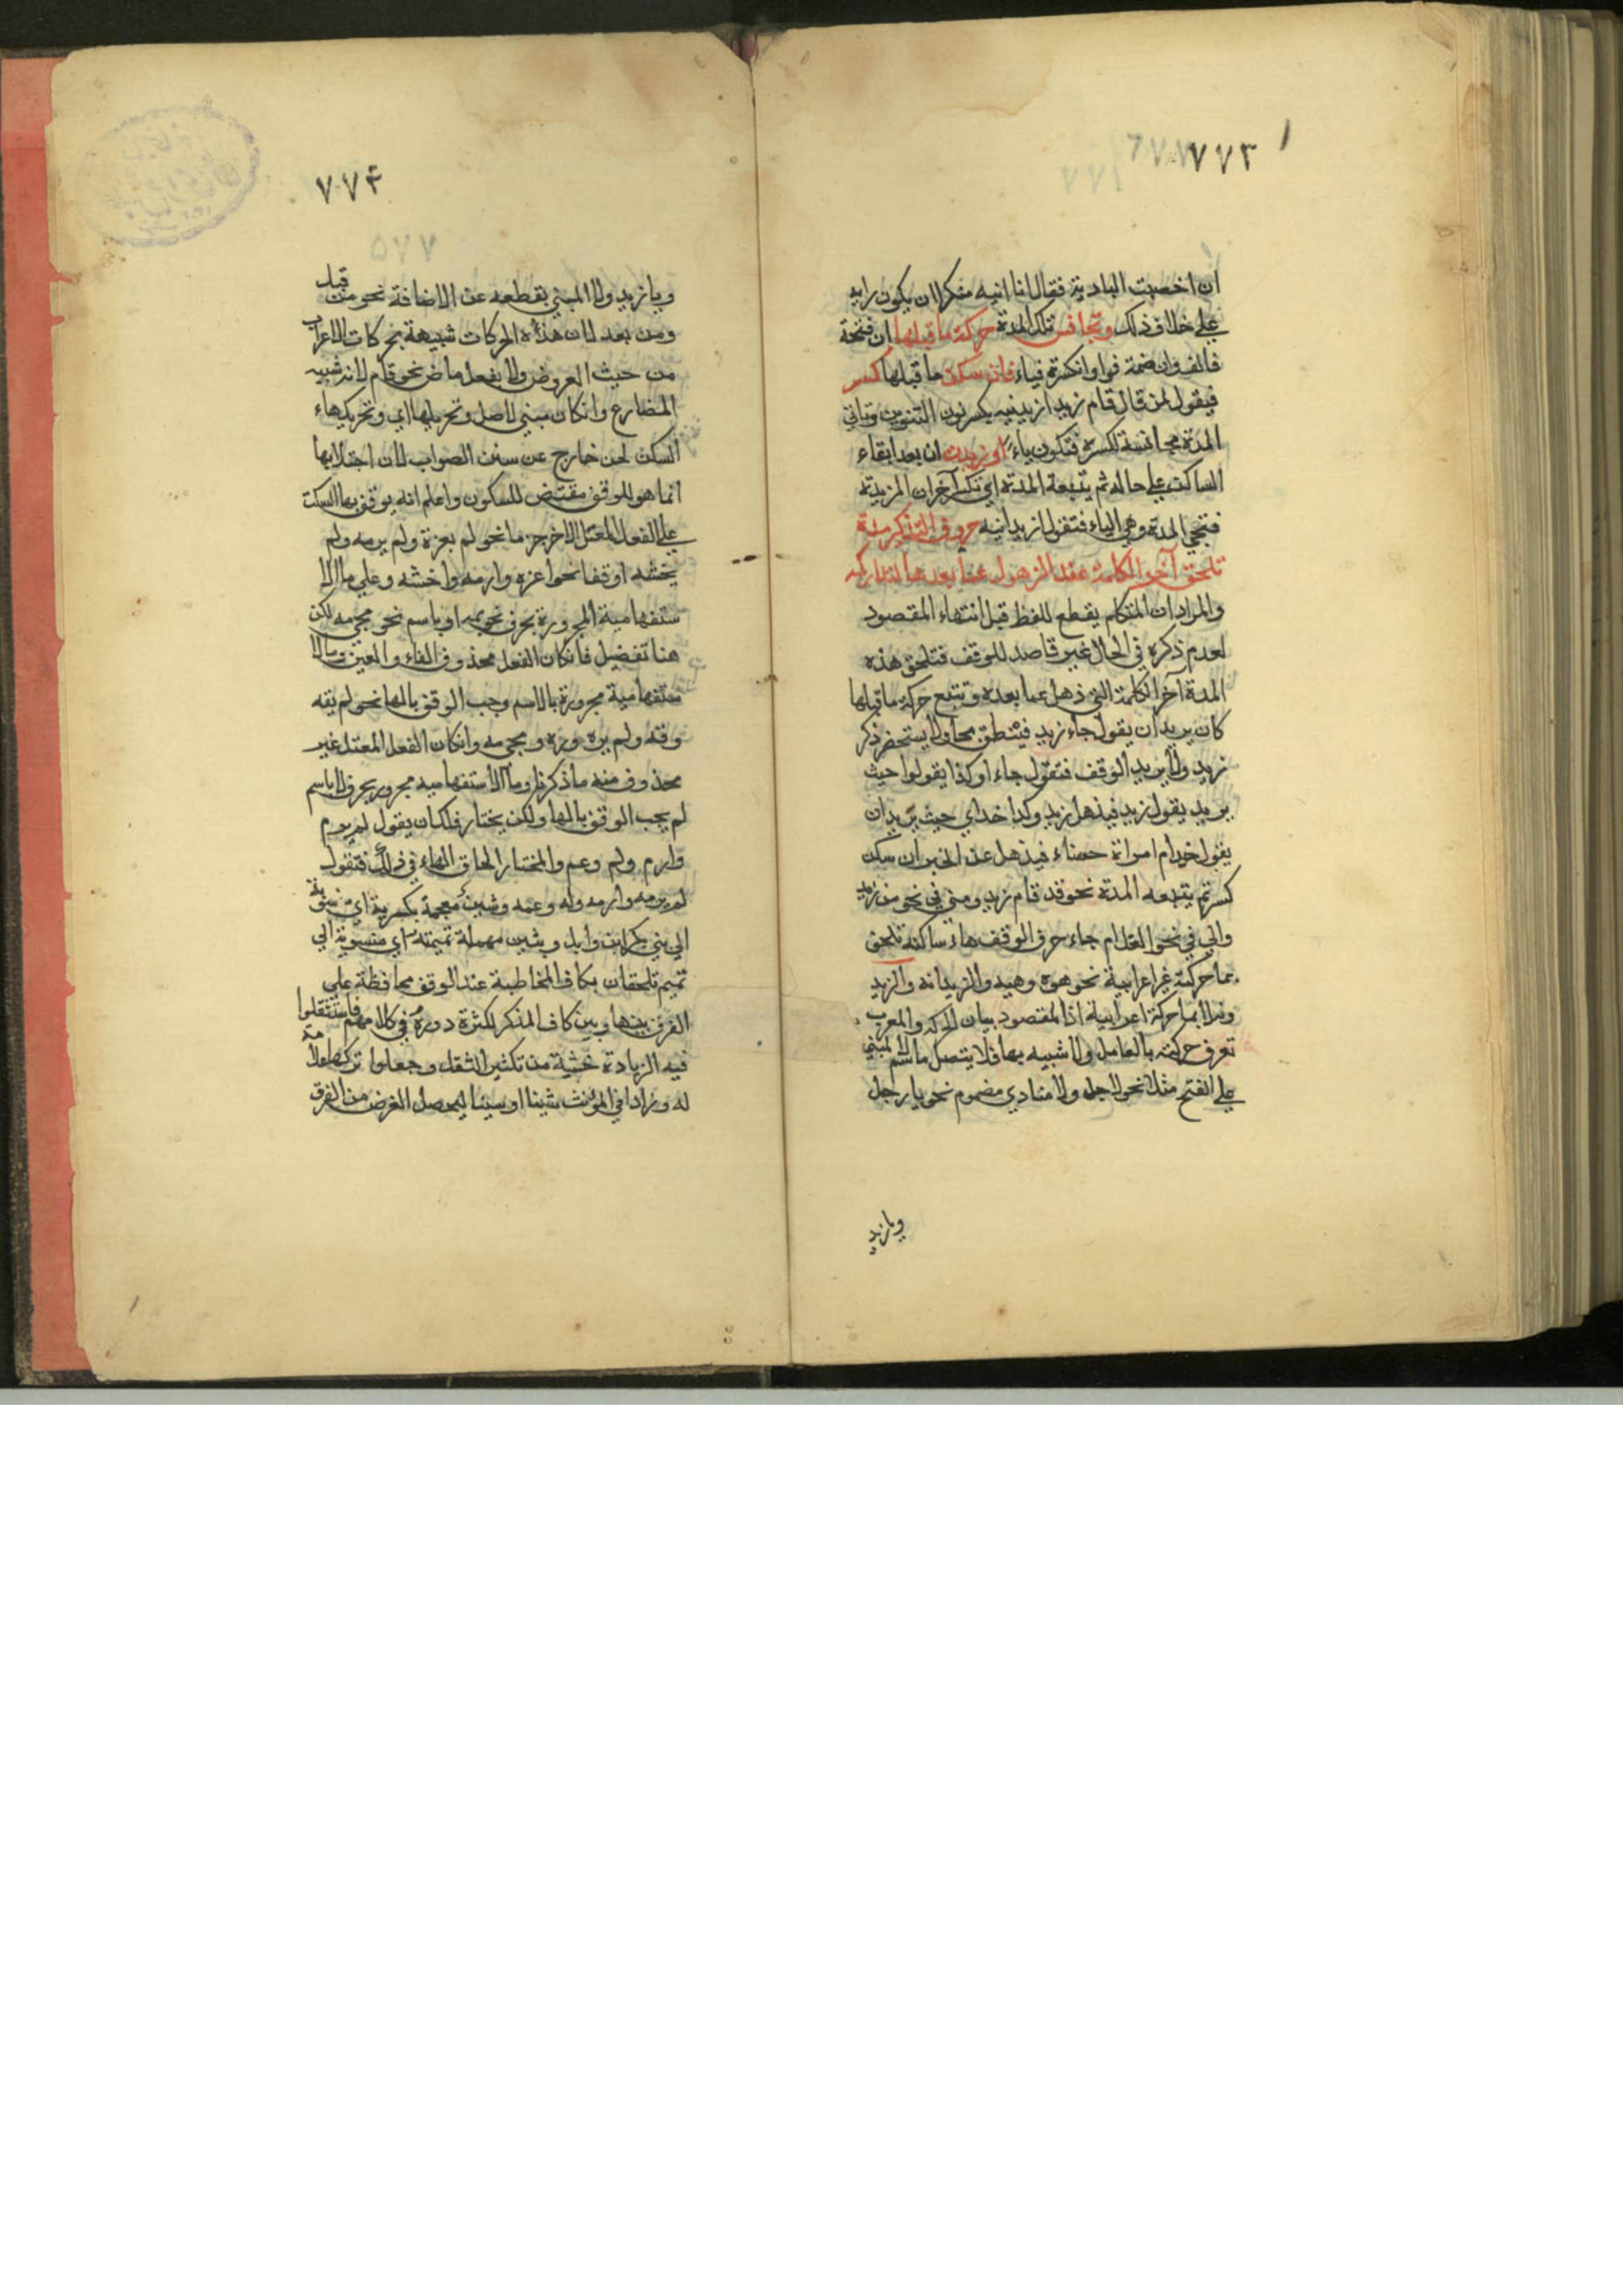 ٧٧٣
ان اخصبت البادية فقال انا انيه منكرا ان يكون رايه
علي خلاف ذلك وتجانس تلك المدة حركة ما قبلها ان فتحة
فالف وان ضمة فواو وانكسرة فياء فان سكن ما قبلها كسر
فيقول لمن قال قام زيد ازيدنيه بكسر نون التنوين وتاتي
المدة مجانسة لكسرة فتكون ياء او زيدت ان بعد ابقاء
الساكت علي حاله ثم يتبعه المدة اي تكسر آخر ان المزيدة
فتجي المدة وهي الياء فتقول ازيدانيه حروف التذكير مدة
تلحق آخر الكلمة عند الذهول عما بعدها لتداركه
والمراد ان المتكلم يقطع للفظ قبل انتهاء المقصود
لعدم ذكره في الحال غير قاصد للوقف فتلحق هذه
المدة آخر الكلمة التي ذهل عما بعده وتتبع حركة ما قبلها
كان يريد ان يقول جاء زيد فينطق بجا ولا يستحضر ذكر
زيد ولا يريد الوقف فتقول جاء او كذا يقولوا حيث
يريد يقول زيد فيذهل زيد وكذا خداي حيث يريد ان
يقول خدام امراة حسناء فيذهل عن الخبر وان سكن
كسر ثم يتبعه المدة نحو قد قام زيد ومني في نحو من زيد
والي في نحو الغلام جاء حرف الوقف هاء ساكنة تلحق
بما حركته غير اعرابية نحو هوه وهيه والزيدانه والزيد
ونه لا بما حركة اعرابية اذا المقصود بيان الحركه والمعرب
تعرف حركته بالعامل ولا شبيه بها فلا يتصل ما سم لا المبني
علي الفتح مثلا نحو لا جل ولا منادي مضموم نحو يا رجل
ويا زيد
٧٧٤
ويا زيد ولا المبني بقطعه عن الاضافة نحو من قبل
ومن بعد لان هذه الحركات شبيهة بحركات الاعراب
من حيث العروض ولا بفعل ماض نحو قام لانه شبيه
المضارع وانكان مبني لاصل وتحريكها اي وتحريك هاء
السكت لحن خارج عن سنن الصواب لان اجتلابها
انما هو للوقف مقتض للسكون واعلم انه يوقف بها السكت
علي الفعل المعتل الاخر جزما نحو لم يغزة ولم يرمه ولم
يخشه او وقفا نحو اغزه وارمه واخشه وعلي ما الا
ستفهامية المجرورة بحرف نحو بمه او باسم نحو مجي مه لكن
هنا تفضيل فانكان الفعل محذوف الفاء والعين وما الا
ستفهامية مجرورة بالاسم وجب الوقف بالها نحو لم يقه
وقه ولم يره وره ومجي مه وانكان الفعل المعتل غير
محذوف منه ما ذكرنا وما الاستفهاميه مجرور بحرف لا باسم
لم يجب الوقف بالها ولكن يختار فلك ان يقول لم يرم
وارم ولم وعم والمختار الحاق الهاء في ذلك فتقول
لم يرمه وارمه وله وعمه وشين معجمة بكسرية اي منسوبة
الي بني بكر ابن وايل وبشين مهملة تميمته اي منسوبة الي
تميم تلحقان بكاف المخاطبة عند الوقف محافظة علي
الفرق بينها وبين كاف المذكر لكثرة دوره في كلامهم فاستثقلوا
فيه الزيادة خشية من تكثير الثقل وجعلوا تركها علامة
له وزادا في المؤنث شينا او سينا ليحصل الغرض من الفرق